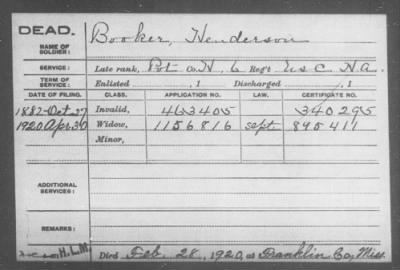 DEAD.
NAME OF SOLDIER: Booker, Henderson
SERVICE: Late rank, Pvt Co. H, 6 Reg't U.S.C. H.A.
TERM OF SERVICE: Enlisted , 1 Discharged , 1
DATE OF FILING. CLASS. APPLICATION NO. LAW. CERTIFICATE NO.
1882-Oct-27 Invalid, 463405 340295
1920 Apr. 30 Widow, 1156816 Sept. 895411
Minor,
ADDITIONAL SERVICES:
REMARKS:
H.L.M. Died Feb. 28, 1920, at Franklin Co., Miss.